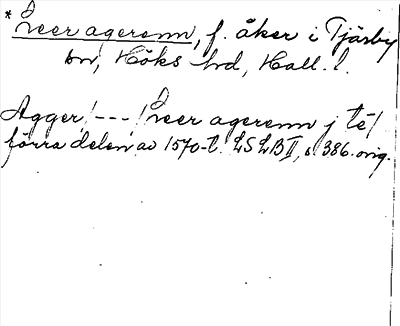 * Sveer agerenn, f. åker i Tjärby
sn, Höks hd, Hall. l.
Agger /---/ Sveer agerenn j té/
förra delen av 1570-t. LSLB II, s. 386. orig.